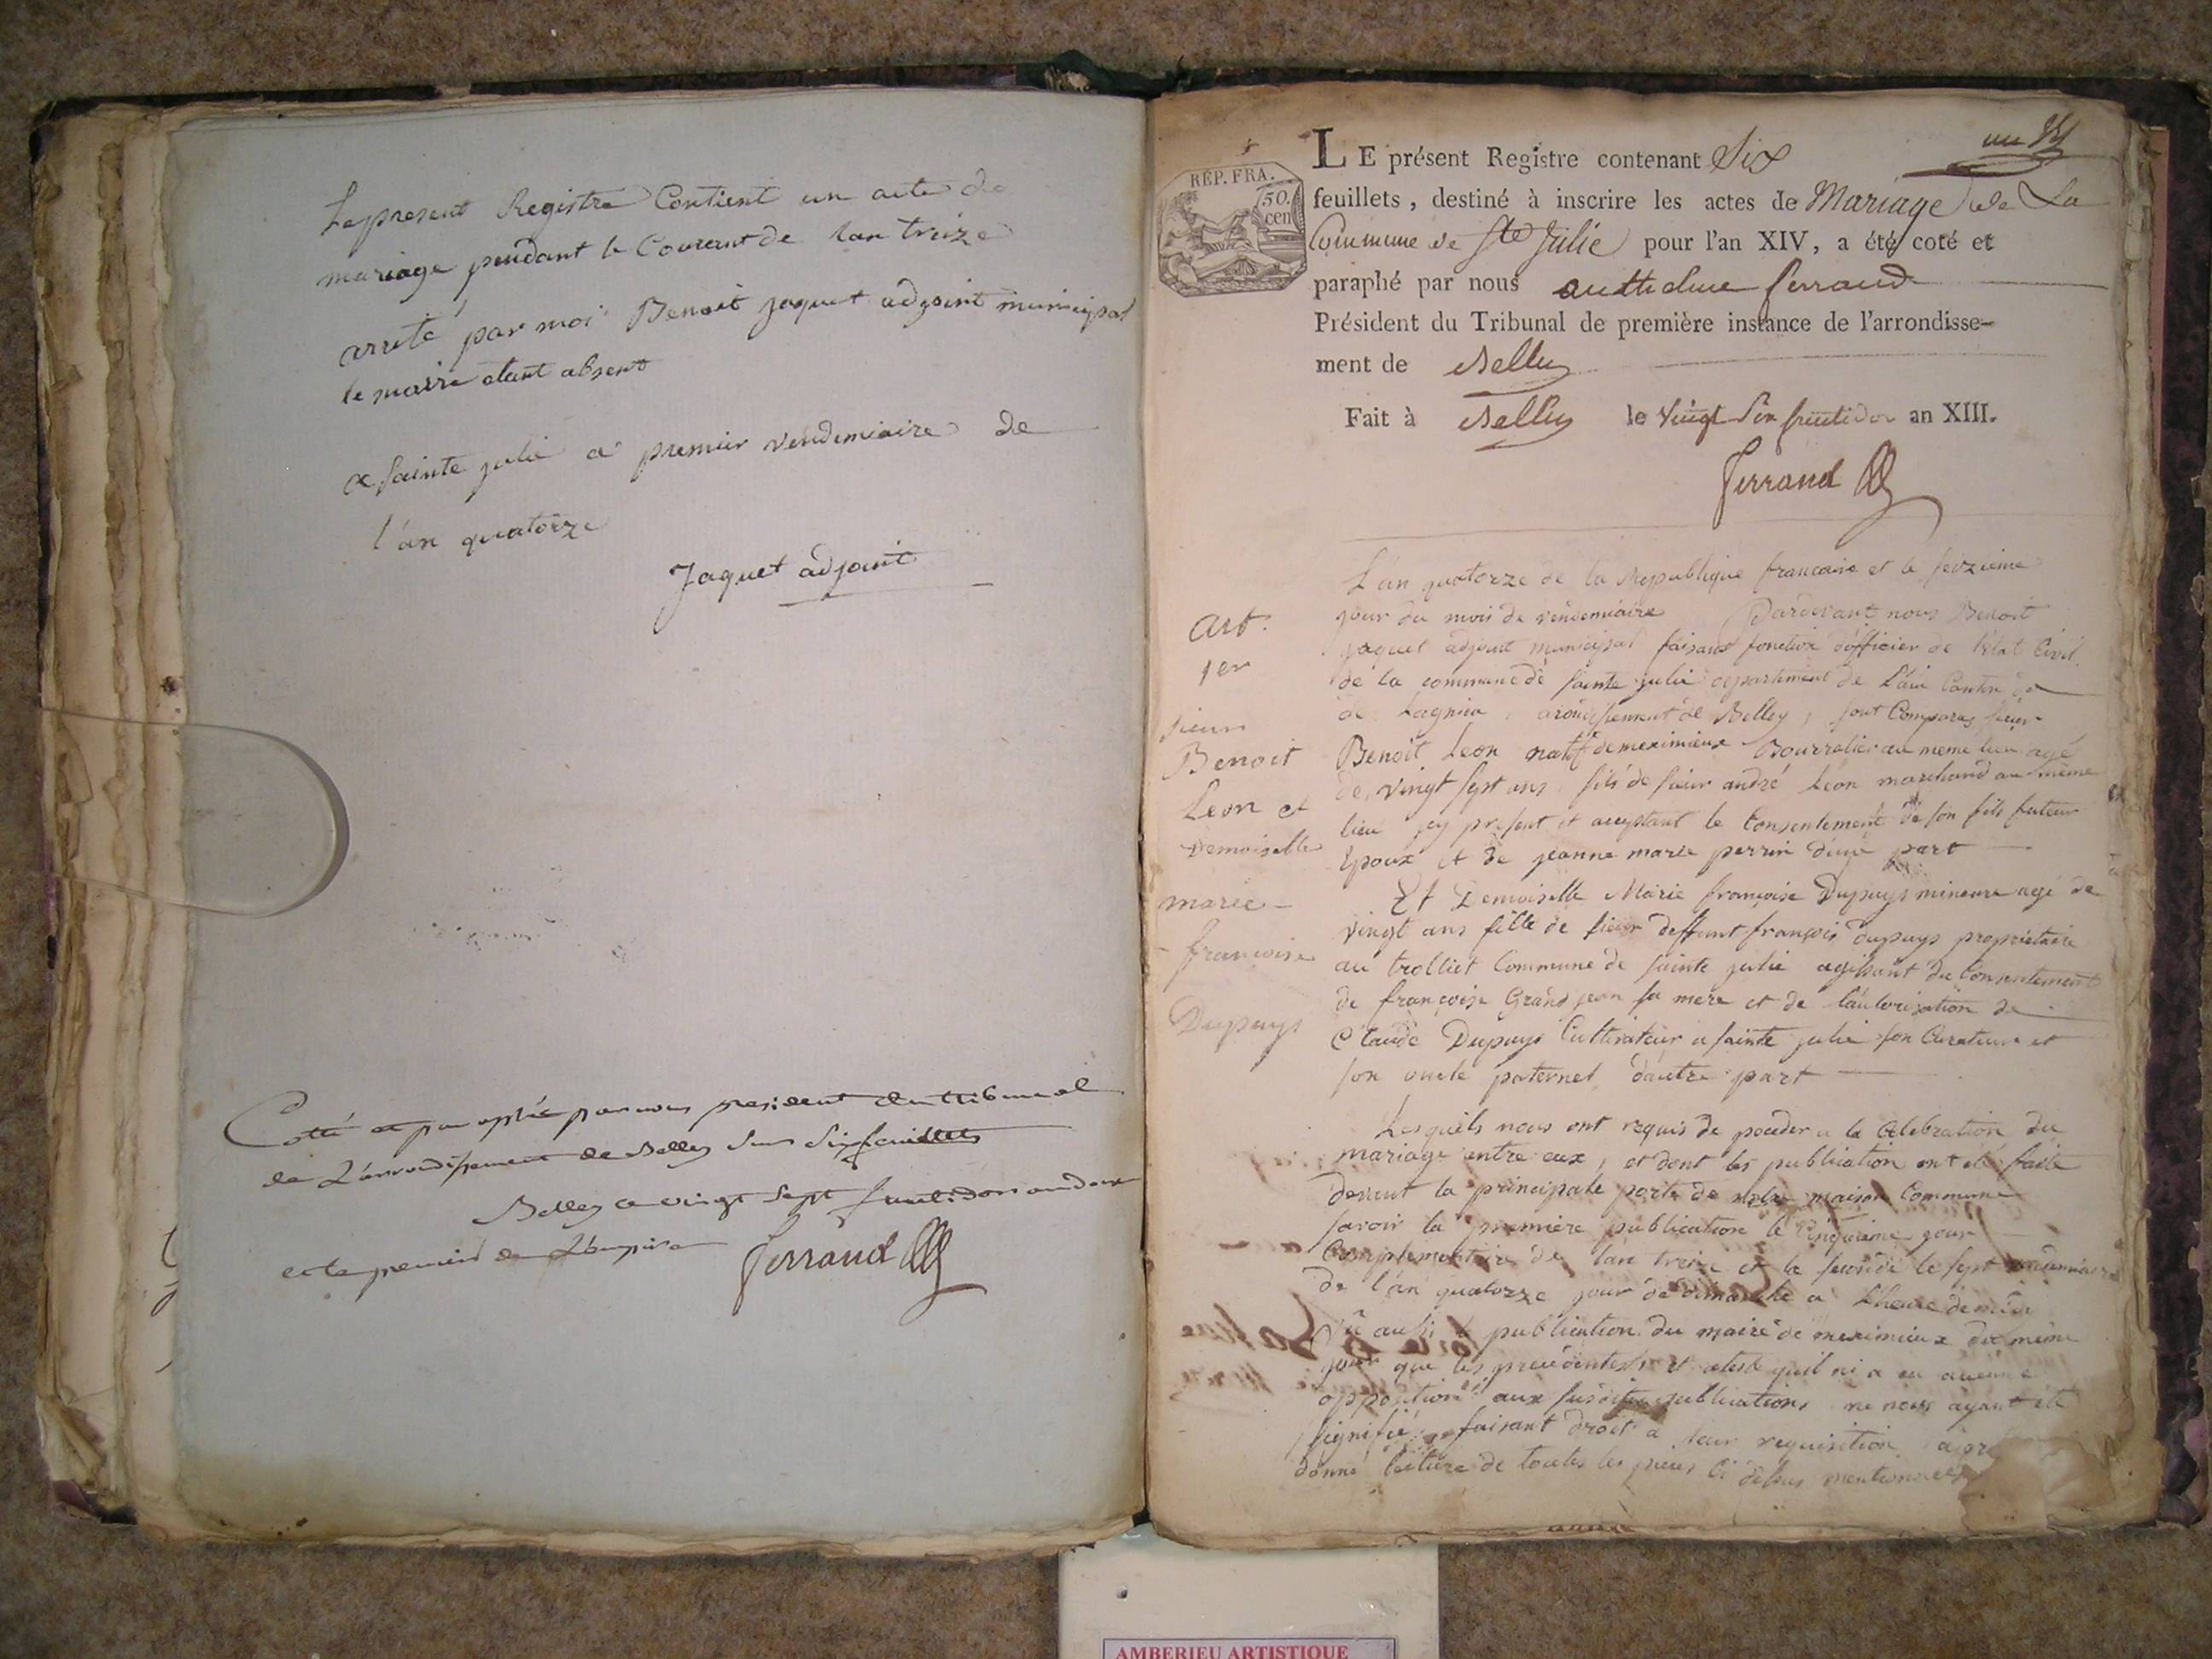 Le present Registre Contient un acte de
mariage pendant le Courant de lan treize
arreté par moi Benoit jaquet adjoint municipal
le maire etant absent
a sainte julie a premier vendemiaire de
l'an quatorze
Jaquet adjoint
Cotté et paraphée par nous president du tribunal
de L'arrondissement de Belley Sur Six feuillets
Belley ce vingt Sept fructidor an douze
et le premier de L'empire Ferraud
un
REP. FRA.
50.
cen
LE présent Registre contenant Six
feuillets, destiné à inscrire les actes de Mariage de La
Commune de Ste Julie pour l'an XIV, a été coté et
paraphé par nous anthelme ferraud
Président du Tribunal de première instance de l'arrondisse-
ment de Belley
Fait à Belley le vingt Six fructidor an XIII.
Ferraud
Art.
1er
sieur
Benoit
Leon et
Demoiselle
marie-
francoise
Dupuys
L'an quatorze de la Republique francaise et le seizieme
jour du mois de vendemiaire Pardevant nous Benoit
jaquet adjoint municipal faisant fonction d'officier de l'état Civil
de la commune de sainte julie departement de L'ain Canton
de Lagnieu, arondissement de Belley, sont Comparus sieur
Benoit Leon natif de meximieux Bourrelier au meme lieu agé
de vingt sept ans fils de sieur andré Léon marchand au même
lieu icy present et acceptant le Consentement de son fils futeur
Epoux et de jeanne marie perrin d'une part
Et Demoiselle Marie françoise Dupuys mineure agé de
vingt ans fille de sieur deffunt françois dupuys proprietaire
au trolliet Commune de sainte julie agissant du Consentement
de françoise Grand jean sa mere et de l'autorisation de
Claude Dupuys Cultivateur a sainte julie son Curateur et
son oncle paternel d'autre part
Lesquels nous ont requis de proceder a la Celebration du
mariage entre eux, et dont les publication ont eté faite
devent la principale porte de notre maison Commune
savoir la premiere publication le Cinquieme jour
Complementaire de lan treize et la seconde le sept
de l'an quatorze jour de dimanche a L'heure de midi
Vu aussi la publication du maire de meximieux du même
jour que les precedentes et ateste quil ni a eu aucune
opposition aux susdites publications ne nous ayant eté
signifié faisant droit a leur requisition
donné lecture de toutes les pieces Ci dessus mentionnées
AMBERIEU ARTISTIQUE